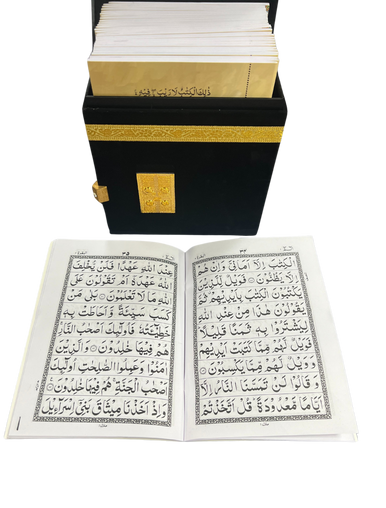 ذٰلِكَ الْكِتٰبُ لَا رَيْبَ ۛ فِيْهِ ۛ
٣٤
الْكِتٰبَ اِلَّاۤ اَمَانِيَّ وَاِنْ هُمْ
اِلَّا يَظُنُّوْنَ ۝ فَوَيْلٌ لِّلَّذِيْنَ
يَكْتُبُوْنَ الْكِتٰبَ بِاَيْدِيْهِمْ ثُمَّ
يَقُوْلُوْنَ هٰذَا مِنْ عِنْدِ اللّٰهِ
لِيَشْتَرُوْا بِهٖ ثَمَنًا قَلِيْلًا
فَوَيْلٌ لَّهُمْ مِّمَّا كَتَبَتْ اَيْدِيْهِمْ
وَوَيْلٌ لَّهُمْ مِّمَّا يَكْسِبُوْنَ ۝
وَقَالُوْا لَنْ تَمَسَّنَا النَّارُ اِلَّاۤ
اَيَّامًا مَّعْدُوْدَةً ؕ قُلْ اَتَّخَذْتُمْ
٣٥
عِنْدَ اللّٰهِ عَهْدًا فَلَنْ يُّخْلِفَ
اللّٰهُ عَهْدَهٗۤ اَمْ تَقُوْلُوْنَ عَلَى
اللّٰهِ مَا لَا تَعْلَمُوْنَ ۝ بَلٰى مَنْ
كَسَبَ سَيِّئَةً وَّاَحَاطَتْ بِهٖ
خَطِيْٓئَتُهٗ فَاُولٰٓئِكَ اَصْحٰبُ النَّارِ
هُمْ فِيْهَا خٰلِدُوْنَ ۝ وَالَّذِيْنَ
اٰمَنُوْا وَعَمِلُوا الصّٰلِحٰتِ اُولٰٓئِكَ
اَصْحٰبُ الْجَنَّةِ ۚ هُمْ فِيْهَا خٰلِدُوْنَ ۝
وَاِذْ اَخَذْنَا مِيْثَاقَ بَنِيْۤ اِسْرَآءِيْلَ